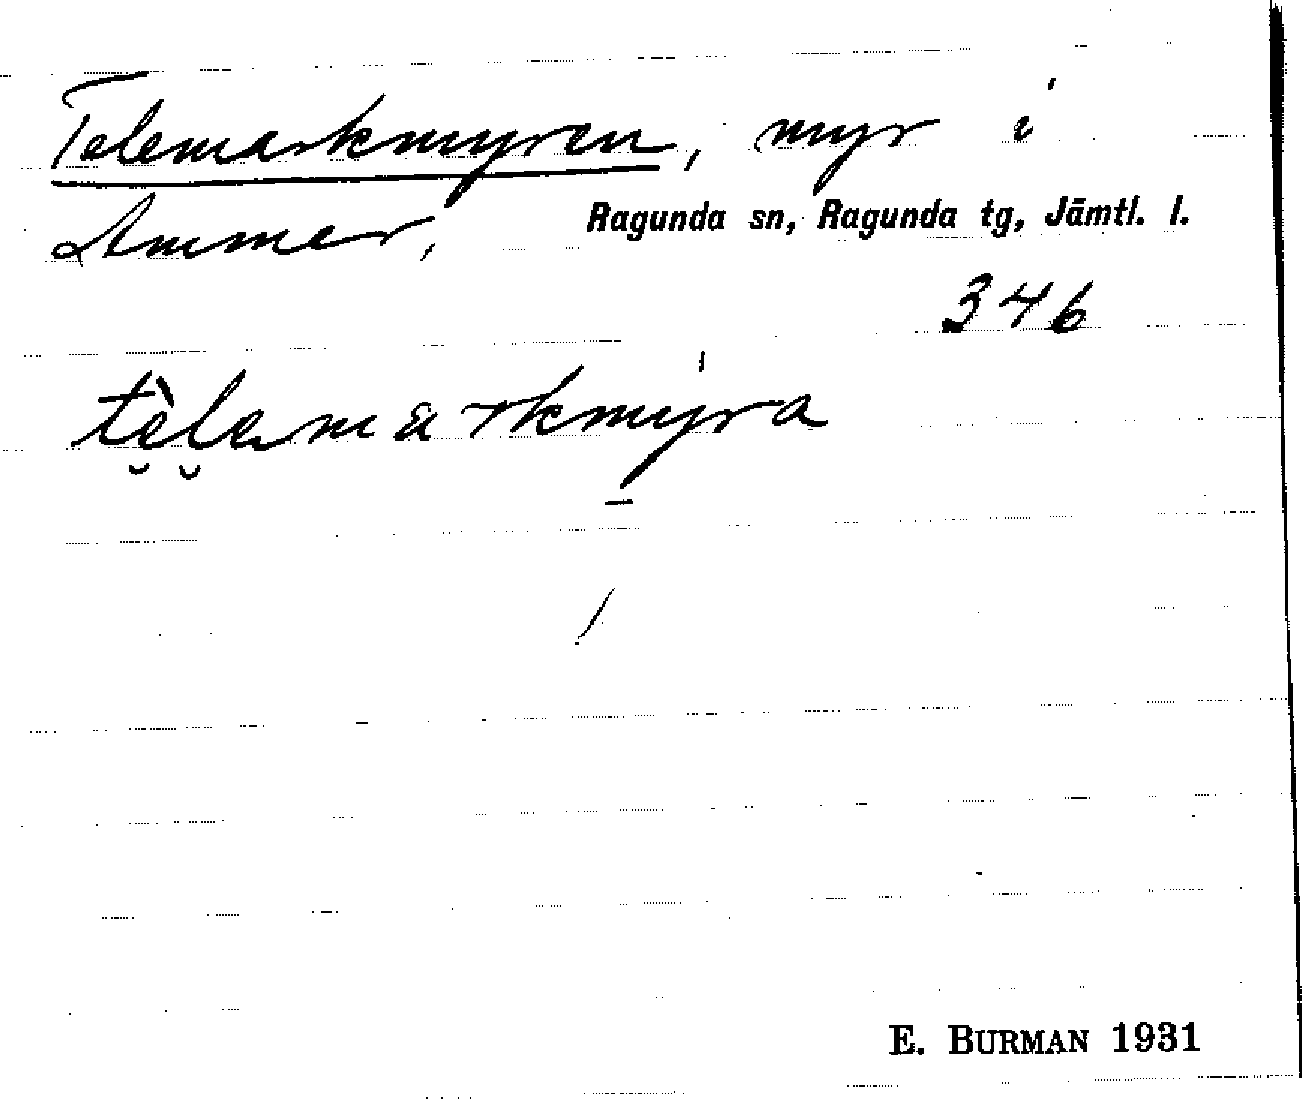 Telemarkmyren, myr i
Ammer, Ragunda sn, Ragunda tg, Jämtl. l.
346
tèlamarkmýra
E. BURMAN 1931